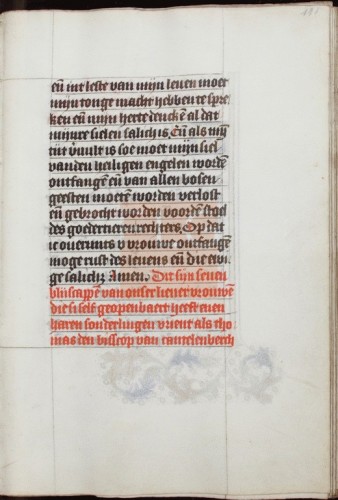 eñ int leste van mijn leuen moet
mijn tonge macht hebben te spre
ken eñ mijn herte dencken al dat
mijnre sielen salich is. Eñ als mijn
tijt vuult is soe moet mijn siel
vanden heiligen engelen wordē
ontfangē eñ van allen bosen
geesten moetē worden verlost
eñ gebrocht worden voordē stoel
des goedertierenrechters. Op dat
ic ouermits v vrouwe ontfangē
moge rust des leuens eñ die ewi
ge salichz Amen. Dit sijn seuen
blijscappē van onser lieuer vrouwē
die si self geopenbaert heeft enen
haren sonderlingen vrient als tho
mas den bisscop van cantelenberch